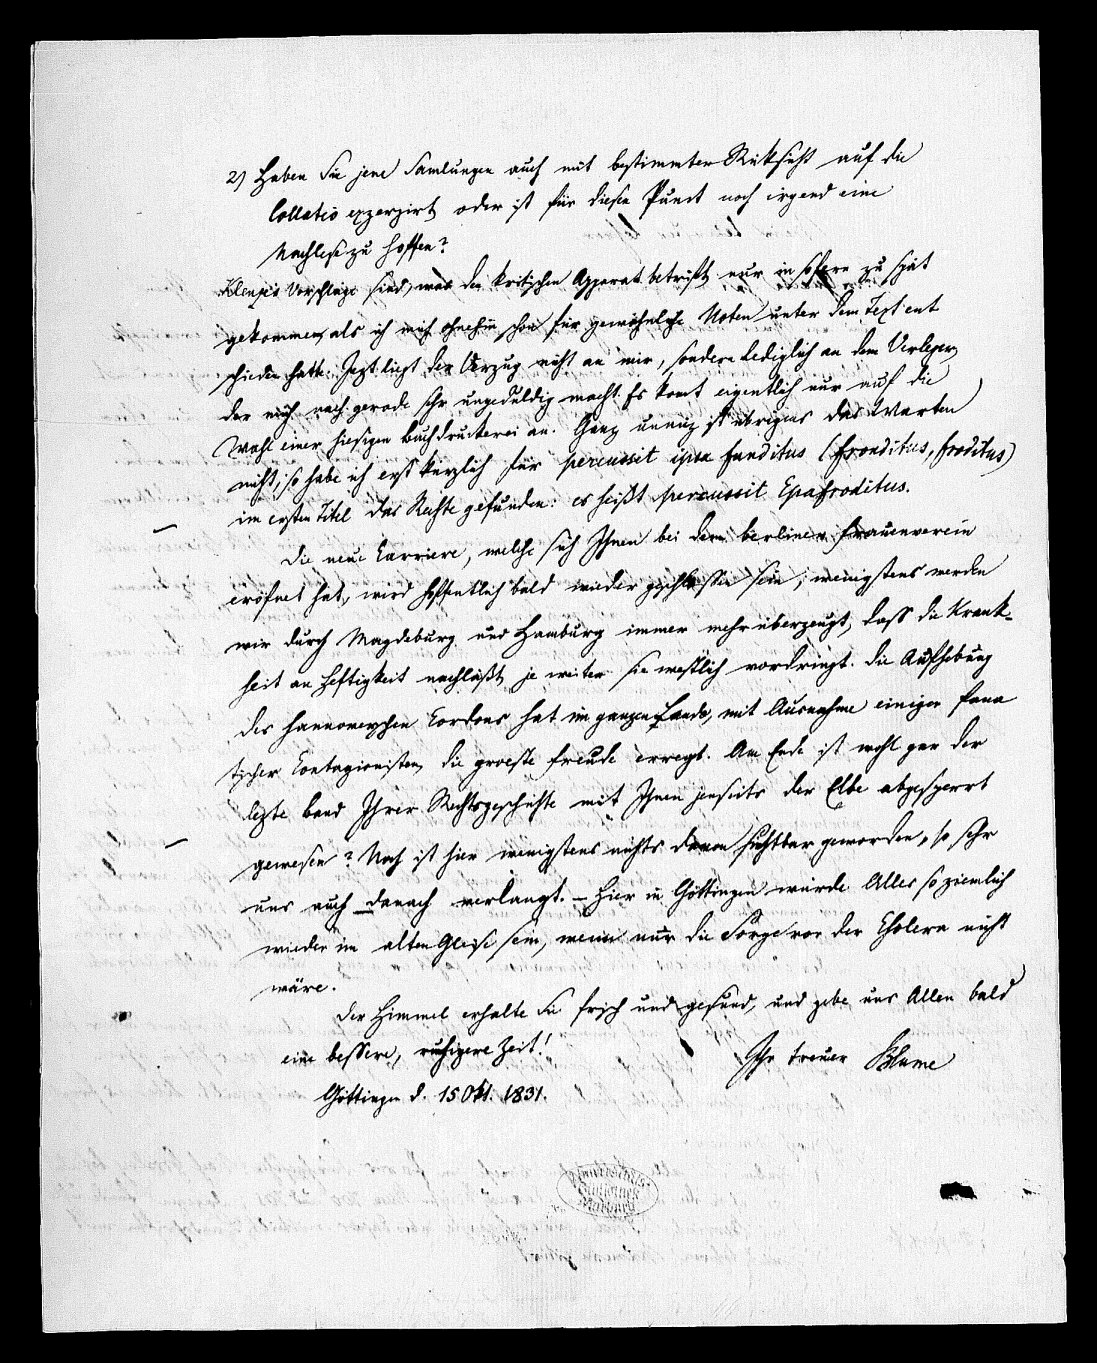 2) Haben Sie jene Samlungen auch mit bestimmter Rüksicht auf die
Collatio exzerpirt, oder ist für diesen Punct noch irgend eine
Nachlese zu hoffen?
Klenze's Vorschläge sind, was den kritischen Apparat betrifft, nur in sofern zu spät
gekommen, als ich mich ohnehin schon für gewöhnliche Noten unter dem Text ent
schieden hatte. Jezt liegt der Verzug nicht an mir, sondern lediglich an dem Verleger,
der mich nach gerade sehr ungeduldig macht. Es komt eigentlich nur auf die
Wahl einer hiesigen Buchdruckerei an. Ganz unnüz ist übrigens das Warten
nicht; so habe ich erst kürzlich für percussit ipsa funditus (fronditus, froditus)
im ersten Titel das Rechte gefunden: es heißt percussit Epafroditus.
Die neue Carriere, welche sich Ihnen bei dem berliner Frauenverein
eröfnet hat, wird hoffentlich bald wieder geschlossen sein; wenigstens werden
wir durch Magdeburg und Hamburg immer mehr überzeugt, dass die Krank-
heit an Heftigkeit nachläßt, je weiter sie westlich vordringt. Die Aufhebung
des hannoverschen Cordons hat im ganzen Lande, mit Ausnahme einiger fana
tischer Contagionisten, die groeste Freude erregt. Am Ende ist wohl gar der
lezte Band Ihrer Rechtsgeschichte mit Ihnen jenseits der Elbe abgesperrt
gewesen? Noch ist hier wenigstens nichts davon sichtbar geworden, so sehr
uns auch danach verlangt. – Hier in Göttingen würde Alles so ziemlich
wieder im alten Gleise sein, wenn nur die Sorge vor der Cholera nicht
wäre.
Der Himmel erhalte Sie frisch und gesund, und gebe uns Allen bald
eine bessere, ruhigere Zeit!
Ihr treuer Blume
Göttingen d. 15 Okt. 1831.